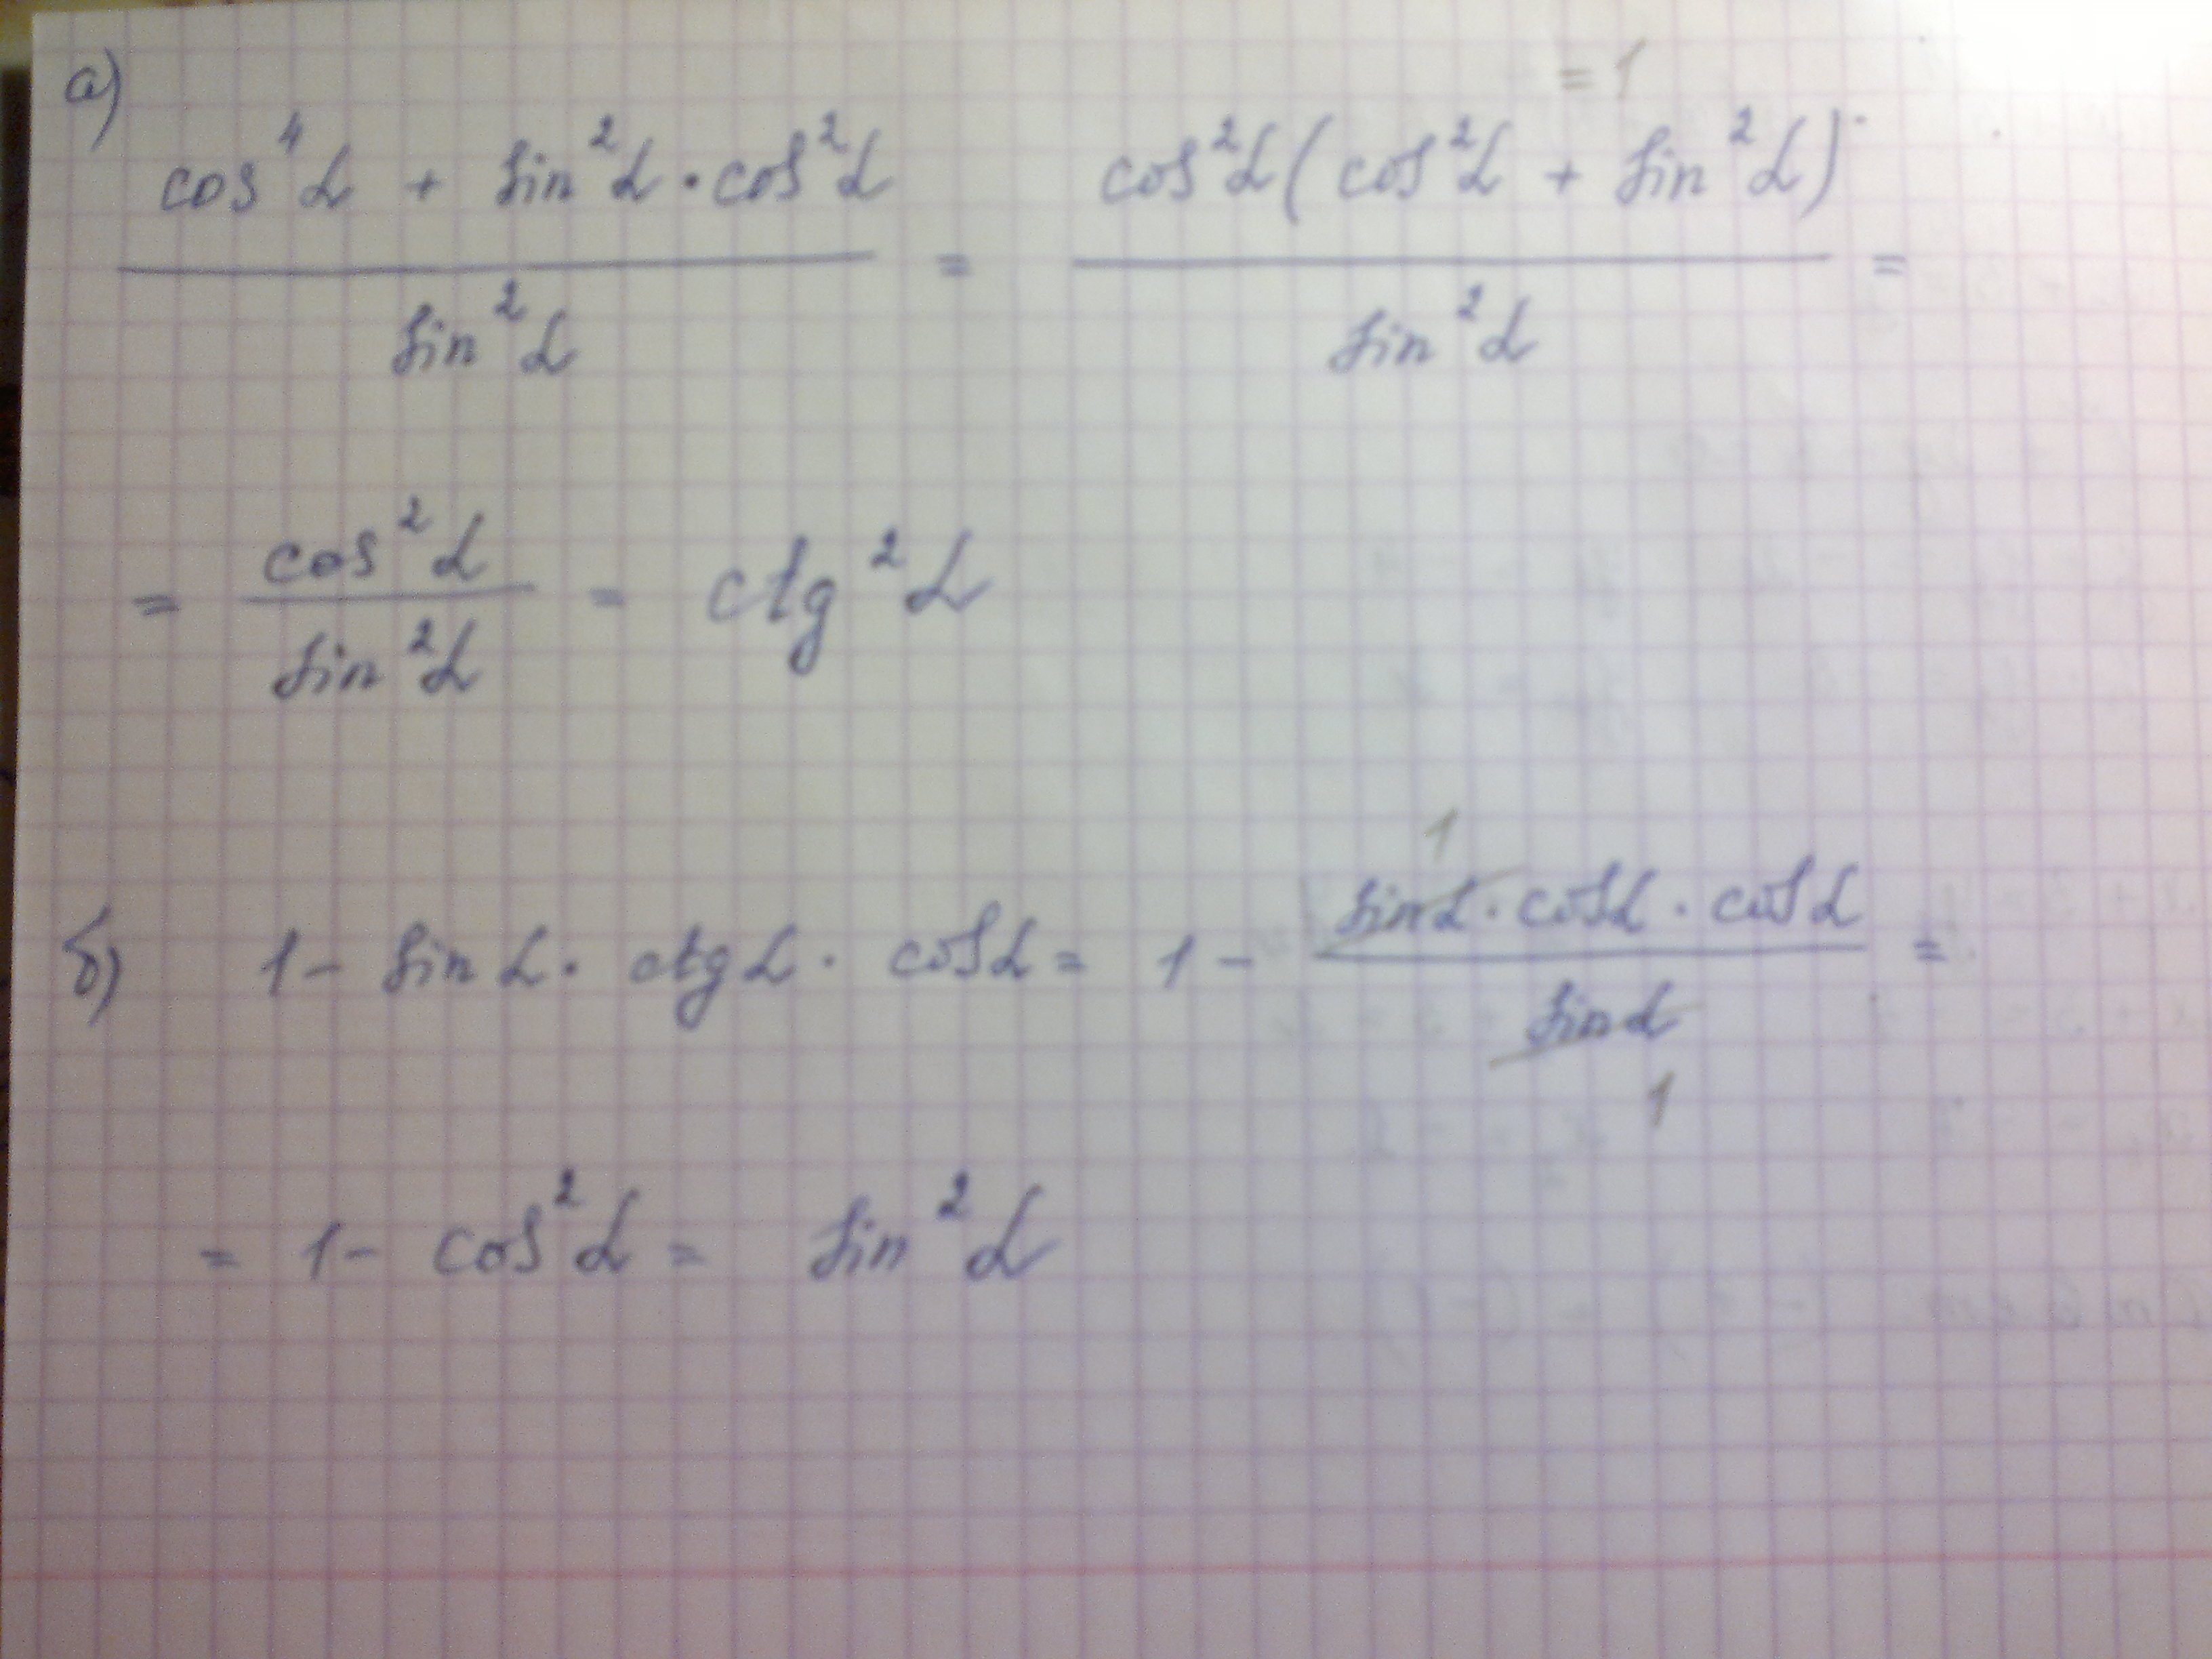 а)
= 1
cos⁴α + sin²α · cos²α / sin²α = cos²α (cos²α + sin²α) / sin²α =
= cos²α / sin²α = ctg²α
б) 1 - sin α · ctg α · cos α = 1 - sin α · cos α · cos α / sin α =
1
1
= 1 - cos²α = sin²α